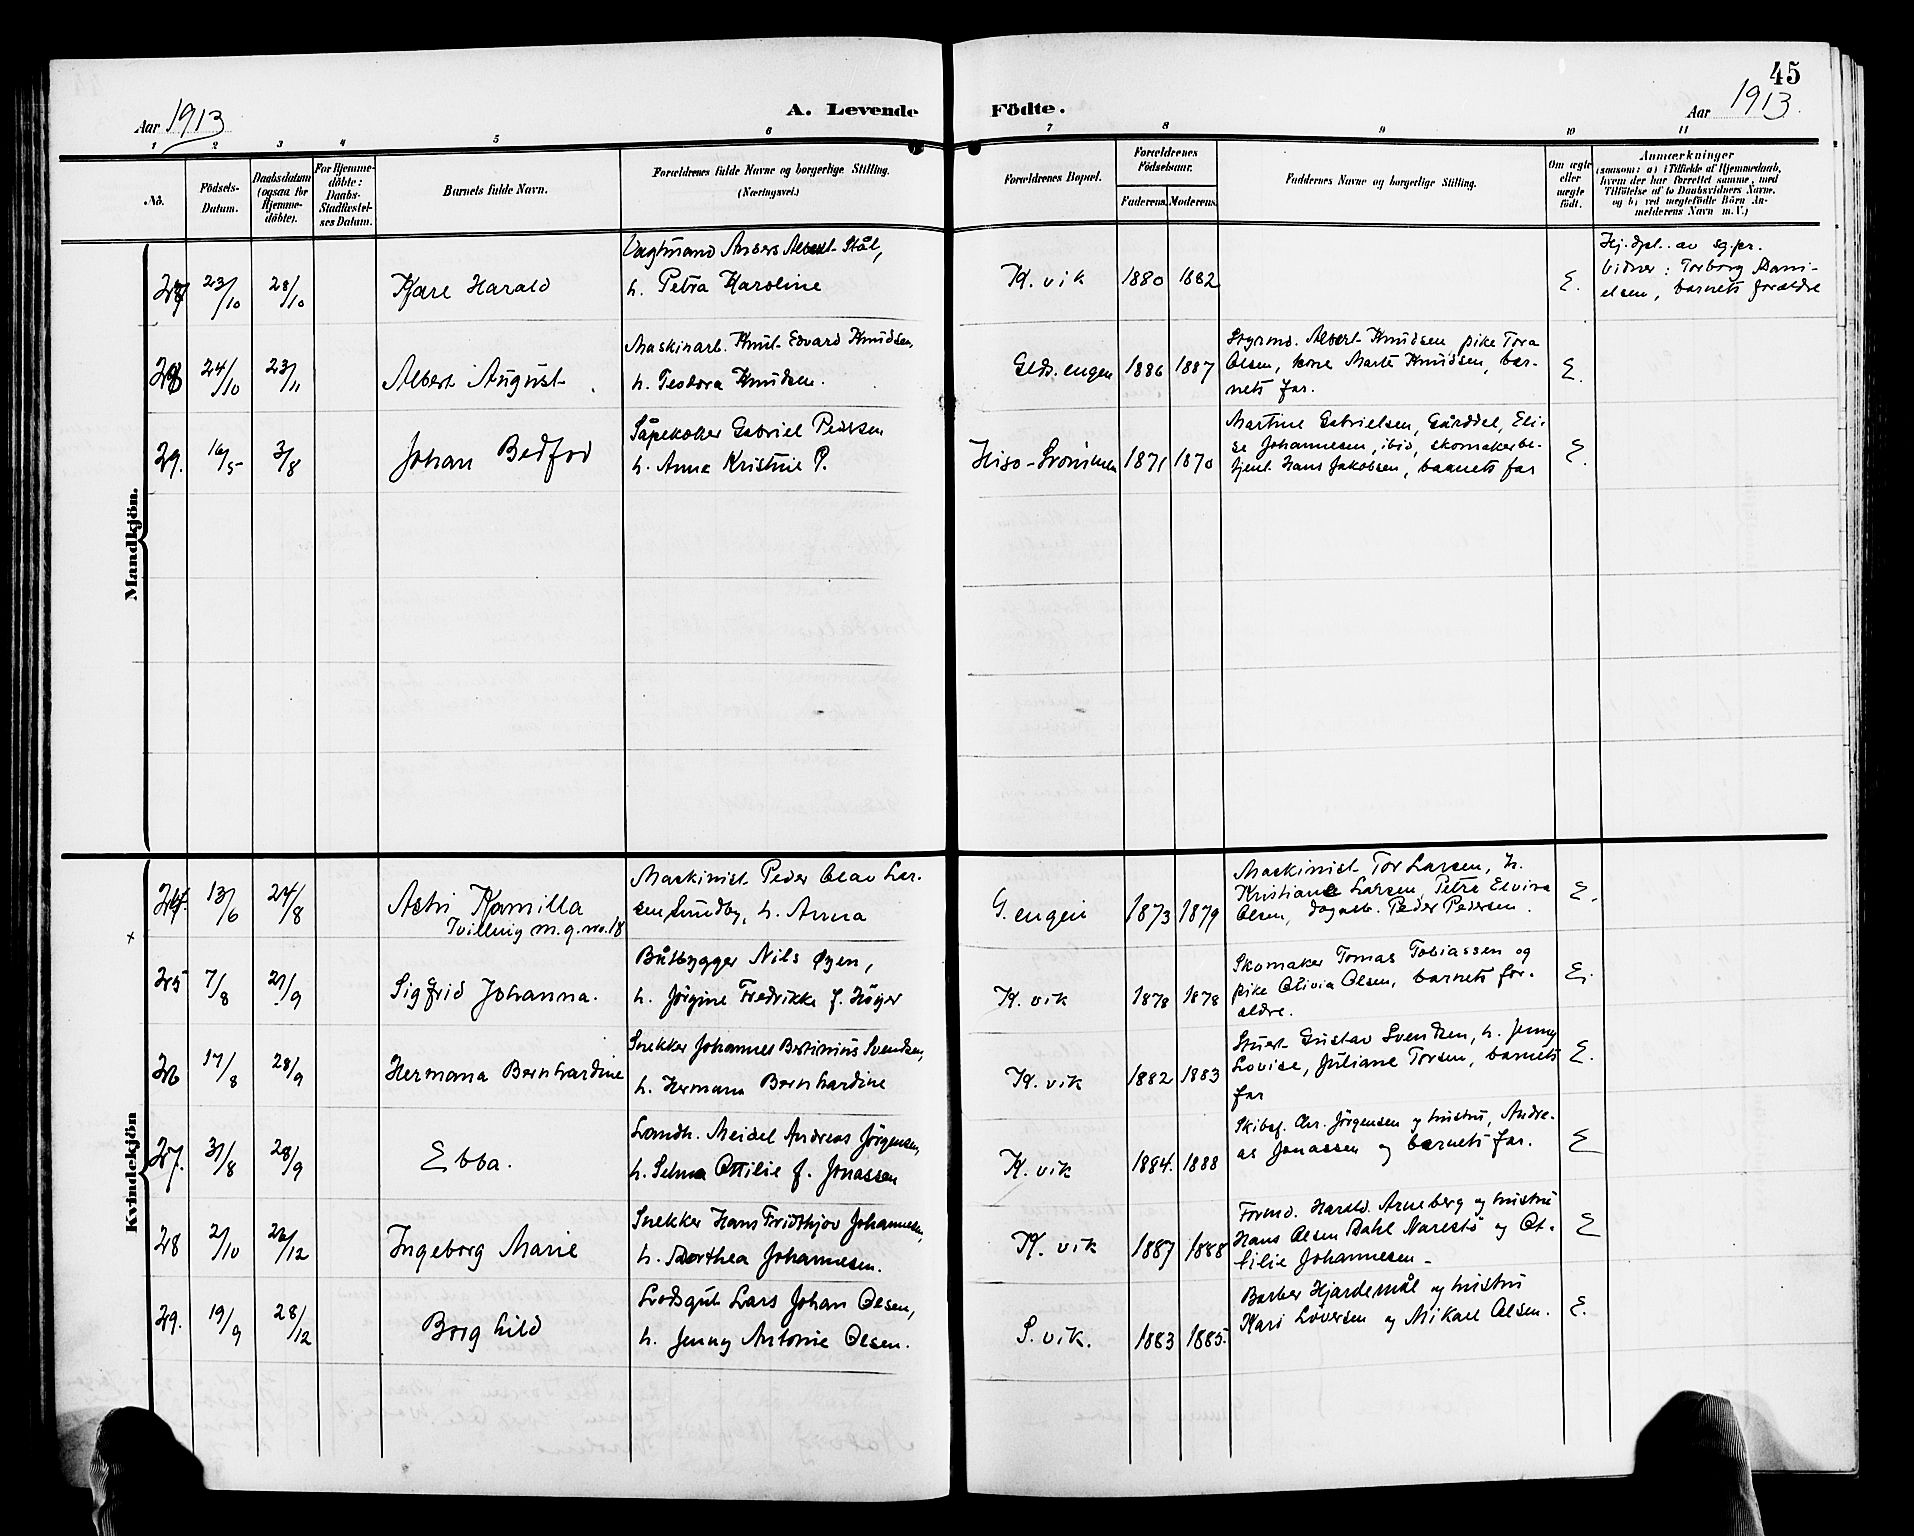 45
Aar 1913
A. Levende Födte.
Aar 1913.
1 2 3 4 5 6 7 8 9 10 11
No.
Födsels-Datum.
Daabsdatum (ogsaa for Hjemmedöbte).
For Hjemmedöbte: Daabs-Stadfæstelses Datum.
Barnets fulde Navn.
Forældrenes fulde Navne og borgerlige Stilling.
(Næringsvei.)
Forældrenes Bopæl.
Forældrenes Födselsaar.
Faderens. Moderens.
Faddernes Navne og borgerlige Stilling.
Om ægte eller uægte født.
Anmærkninger
(saasom: a) i Tilfælde af Hjemmedaab, hvem der har forrettet samme, med Tilföielse af to Daabsvidners Navne, og b) ved uægtefödte Börn Anmelderens Navn m. V.)
Mandkjön.
27 23/10 28/10 Kåre Harald
Vagtmand Anders Albert Stål,
h. Petra Karoline
K. vik 1880 1882 E.
Hj. dpt. av sg.pr.
Vidner: Torborg Dani-
elsen, barnets forældre
28 24/10 23/11 Albert August
Maskinarb. Knut Edvard Knudsen,
h. Teodora Knudsen.
Glds. engen 1886 1887
Styrmd. Albert Knudsen pike Tora
Olsen, kone Marte Knudsen, bar-
nets far.
E.
29. 16/5 3/8 Johan Bedford
Såpekoker Gabriel Pedersen
h. Anna Kristine P.
Hisø-Strømmen 1871 1870
Martine Gabrielsen, Gårddal, Eli-
se Johannesen, ibid, skomakerbe-
tjent Hans Jakobsen, barnets far
E.
Kvindekjön
24. 13/6 24/8 Astri Kamilla
Tvilling m. g. no. 18
Maskinist Peder Olav Lar-
sen Sundby, h. Anna
G. engen 1873 1879
Maskinist Tor Larsen, h.
Kristiane Larsen, Petra Elvira
Olsen, dagarb. Peder Pedersen.
E.
25 7/8 21/9 Sigfrid Johanna.
Båtbygger Nils Øyen,
h. Jørgine Fredrikke f. Höyer
K. vik 1878 1878
Skomaker Tomas Tobiassen og
pike Olivia Olsen, barnets for-
ældre.
E.
26 17/8 28/9 Hermana Bernhardine
Snekker Johannes Bertinius Svendsen,
h. Hermana Bernhardine
K. vik 1882 1883
Stuert Gustav Svendsen, h. Jenny
Lovise, Juliane Torsen, barnets
far
E.
27. 31/8 28/9 Ebba.
Landh. Meidel Andreas Jörgensen,
h. Selma Ottilie f. Jonassen
K. vik 1884. 1888
Skibsf. Chr. Jörgensen og hustru, Andre-
as Jonassen og barnets far.
E
28 2/10 26/12 Ingeborg Marie
Snekker Hans Fridthjov Johannesen,
h. Dorthea Johannesen.
K. vik 1887 1888
Formd. Harald Arneberg og hustru
Hans Olsen Dahl Narestö og Ot-
tilie Johannesen
E
29. 19/9 28/12 Borghild
Lodsgut Lars Johan Olsen,
h. Jenny Antonie Olsen.
S. vik. 1883 1885.
Barber Hjardemål og hustru
Kari Löversen og Mikael Olsen.
E.